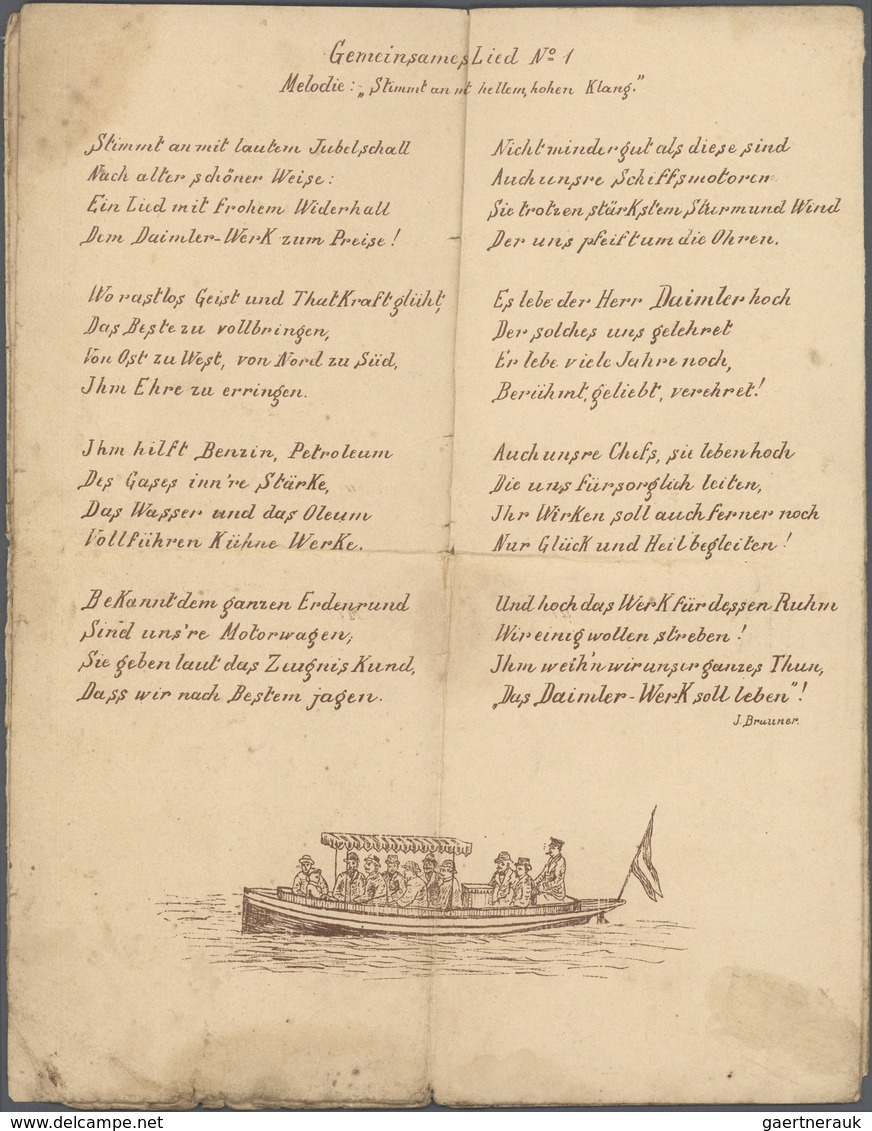 Gemeinsames Lied No 1
Melodie: „Stimmt an mit hellem, hohen Klang."
Stimmt an mit lautem Jubelschall
Nach alter schöner Weise:
Ein Lied mit frohem Widerhall
Dem Daimler-Werk zum Preise!
Wo rastlos Geist und Thatkraft glüht,
Das Beste zu vollbringen,
Von Ost zu West, von Nord zu Süd,
Ihm Ehre zu erringen.
Ihm hilft Benzin, Petroleum
Des Gases inn're Stärke,
Das Wasser und das Oleum
Vollführen Kühne Werke.
Bekannt dem ganzen Erdenrund
Sind uns're Motorwagen;
Sie geben laut das Zeugnis Kund,
Dass wir nach Bestem jagen.
Nicht minder gut als diese sind
Auch unsre Schiffsmotoren
Sie trotzen stärkstem Sturm und Wind
Der uns pfeift um die Ohren.
Es lebe der Herr Daimler hoch
Der solches uns gelehret
Er lebe viele Jahre noch,
Berühmt, geliebt, verehret!
Auch unsre Chefs, sie leben hoch
Die uns fürsorglich leiten,
Ihr Wirken soll auch ferner noch
Nur Glück und Heil begleiten!
Und hoch das Werk für dessen Ruhm
Wir einig wollen streben!
Ihm weih'n wir unser ganzes Thun,
„Das Daimler-Werk soll leben"!
J. Brauner.
www.delcampe.net
gaertnerauk